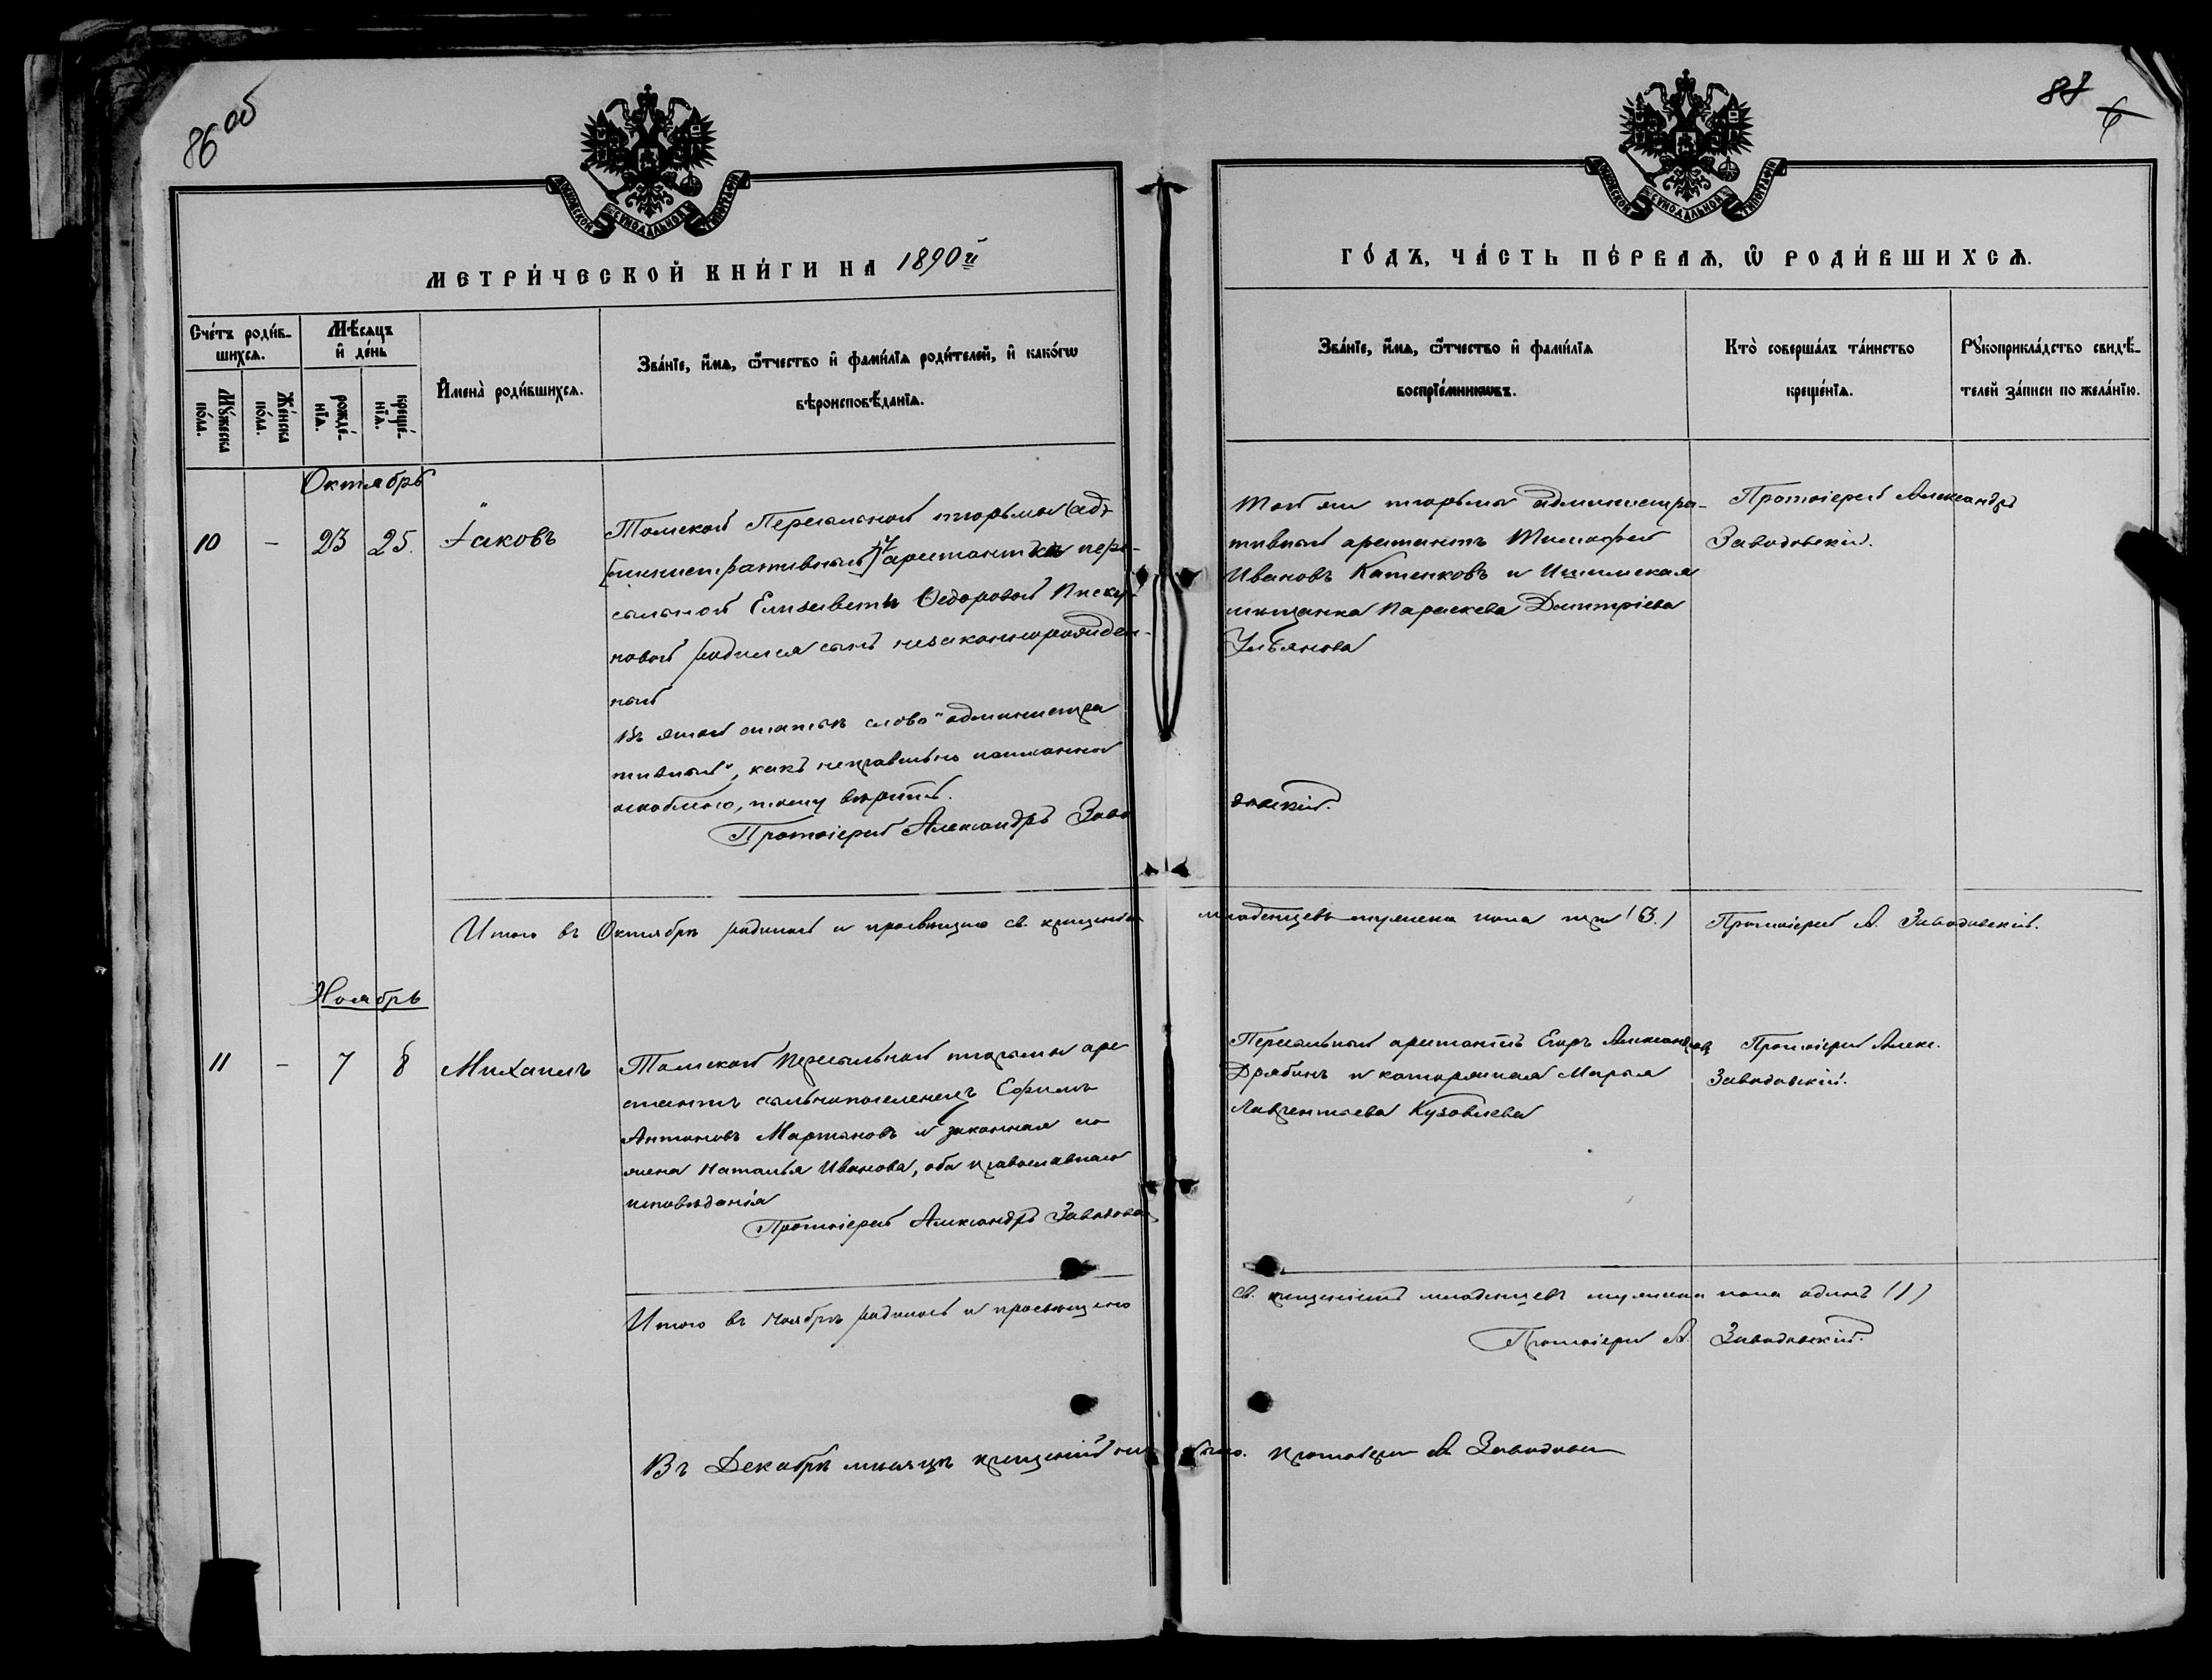 86 об
МОСКОВСКОЙ СѴНОДАЛЬНОЙ ТИПОГРАФІИ
МЕТРИ́ЧЕСКОЙ КНИ́ГИ НА 1890й
Сче́тъ роди́в-
шихсѧ.
Мѣ́сѧцъ
и҆ де́нь
Мꙋ́жеска
по́ла.
Же́нска
по́ла.
рожде́-
нїѧ.
креще́-
нїѧ.
И҆мена̀ роди́вшихсѧ.
Зва́нїе, и҆́мѧ, ѻ҆́тчество и҆ фами́лїѧ роди́телей, и҆ како́гѡ
вѣроисповѣ́данїѧ.
Октябрь
10
-
23
25.
Іаковъ
Томской Пересыльной тюрьмы (ад-
министративный) арестантки пере-
сыльной Елизаветы Ѳедоровой Писку-
новой родился сынъ незаконнорожден-
ный
Въ этой статьѣ слово "администра
тивный", какъ неправильно написанное
оскоблено, тому вѣрить.
Протоіерей Александръ Заво
Итого въ Октябрѣ родилось и просвѣщено св. крещеніемъ
Ноябрь
11
-
7
8
Михаилъ
Томской Пересыльной тюрьмы аре
стантъ сыльнопоселенецъ Ефимъ
Антоновъ Мартыновъ и законная его
жена Наталья Иванова, оба православнаго
исповѣданія
Протоіерей Александръ Заводовск
Итого въ Ноябрѣ родилось и просвѣщено
Въ Декабрѣ мѣсяцѣ крещеній не
МОСКОВСКОЙ СѴНОДАЛЬНОЙ ТИПОГРАФІИ
ГО́ДЪ, ЧА́СТЬ ПЕ́РВАѦ, Ѡ҆ РОДИ́ВШИХСѦ.
Зва́нїе, и҆́мѧ, ѻ҆́тчество и҆ фами́лїѧ
воспрїе́мникѡвъ.
Кто̀ соверша́лъ та́инство
креще́нїѧ.
Рꙋкоприкла́дство свидѣ́-
телей за́писи по жела́нїю.
Той же тюрьмы администра-
тивный арестантъ Тимофей
Ивановъ Катенковъ и Ишимская
мѣщанка Параскева Димитріева
Ульянова
Протоіерей Александръ
Заводовскій.
довскій.
младенцевъ мужеска пола три (3.)
Протоіерей А. Заводовскій.
Пересыльный арестантъ Егоръ Александровъ
Дрябинъ и каторжная Марья
Лаврентьева Кузовлева
Протоіерей Алекс.
Заводовскій.
св. крещеніемъ младенцевъ мужеска пола одинъ (1)
Протоіерей А. Заводовскій.
было. Протоіерей А Заводовск